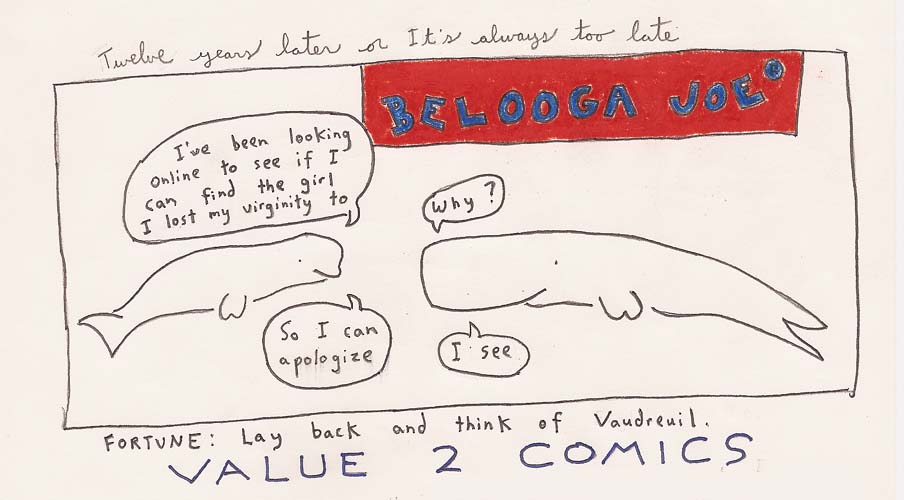 Twelve years later or It's always too late
BELOOGA JOE®
I've been looking
online to see if I
can find the girl
I lost my virginity to
Why?
So I can
apologize
I see
FORTUNE: Lay back and think of Vaudreuil.
VALUE 2 COMICS